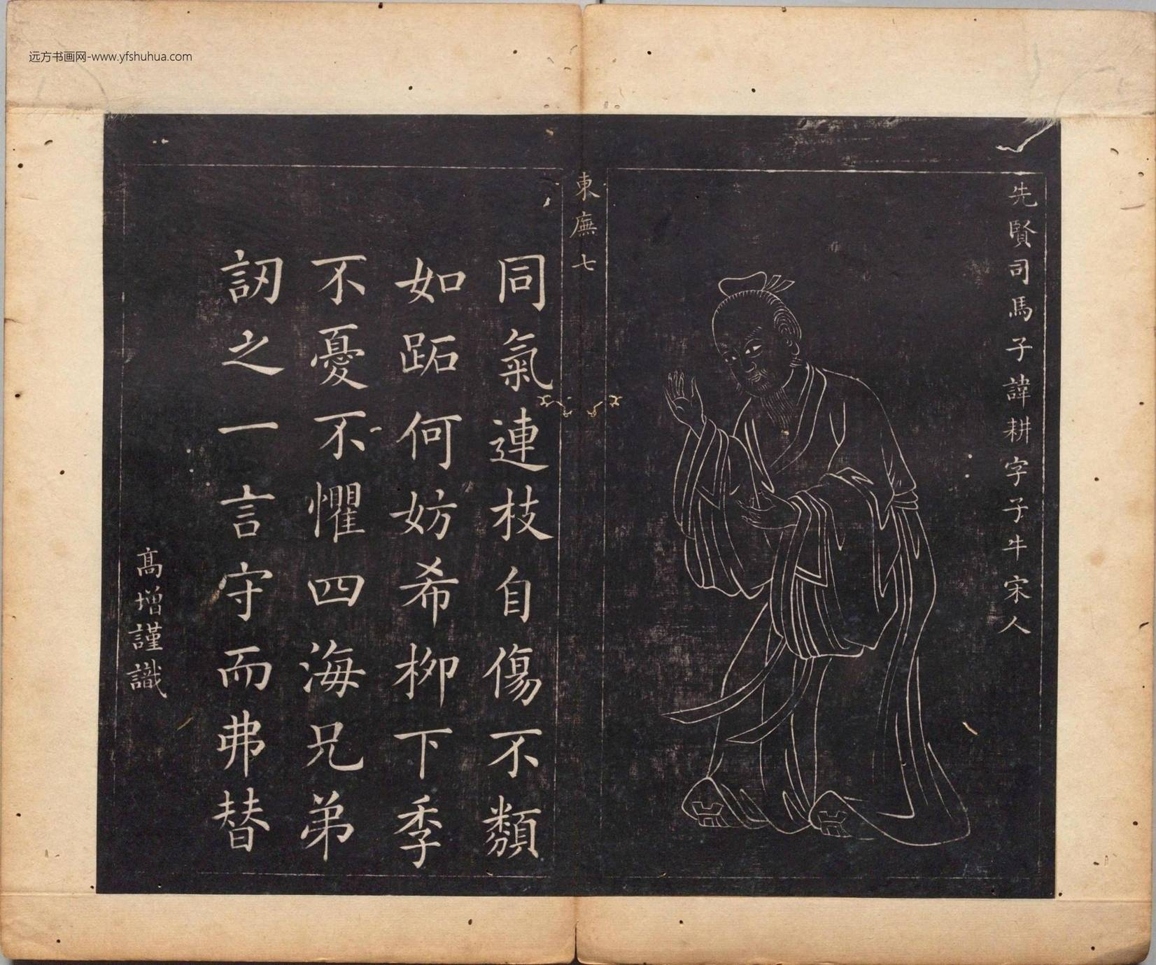 远方书画网-www.yfshuhua.com
先賢司馬子諱耕字子牛宋人
東廡七
同氣連枝自傷不類
如跖何妨希柳下季
不憂不懼四海兄弟
訒之一言守而弗替
髙增謹識